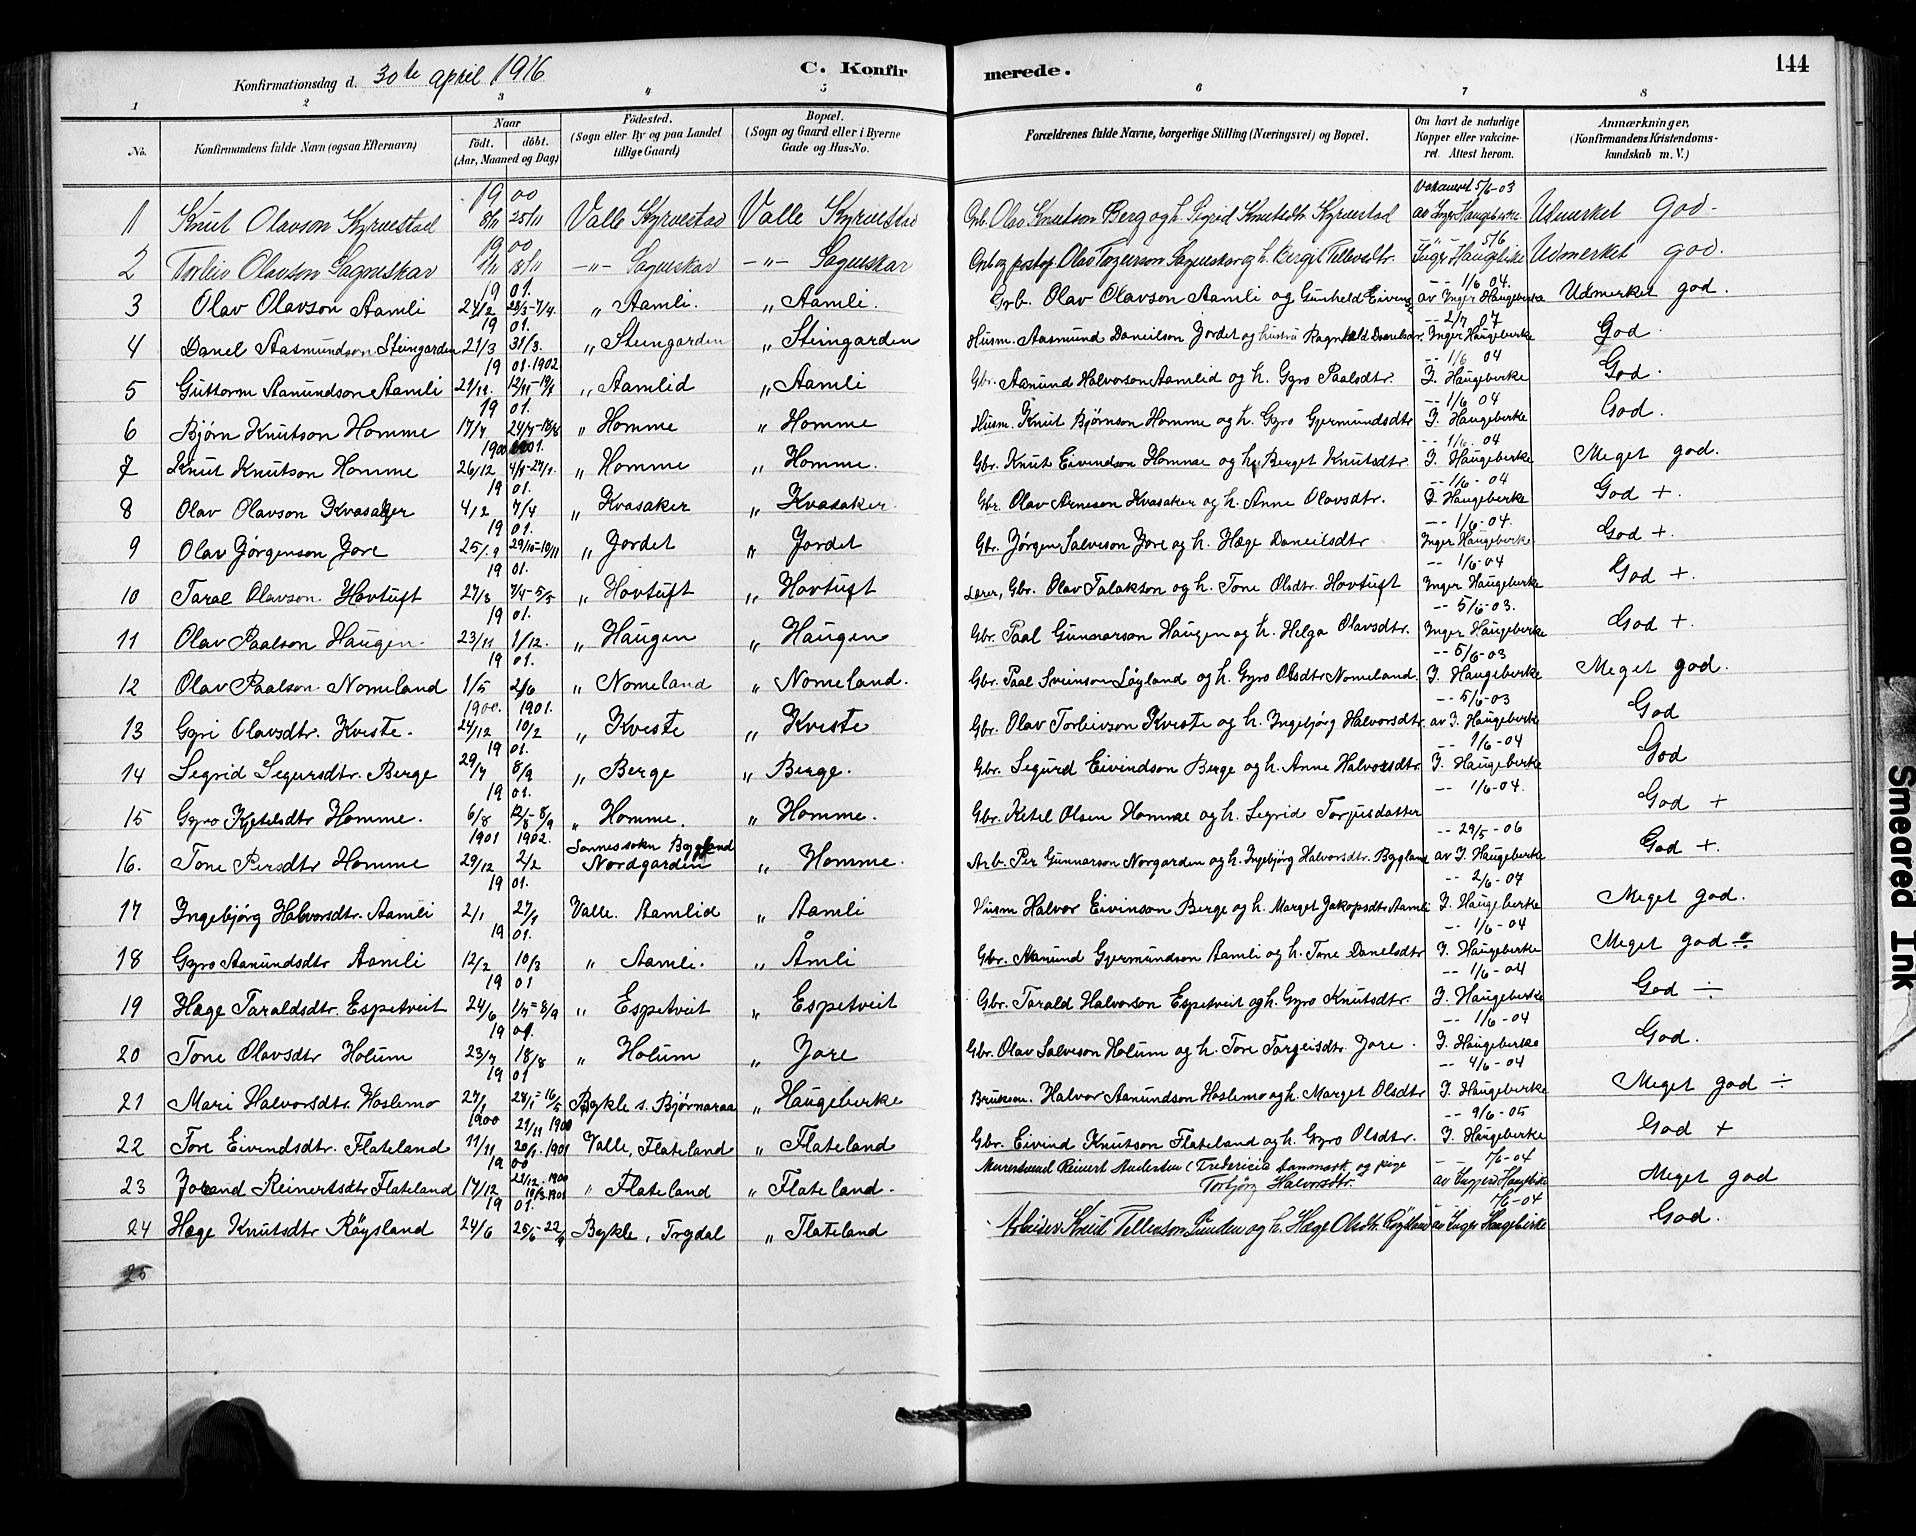 Konfirmationsdag d. 30te april 1916 C. Konfirmerede. 144
1 2 3 4 5 6 7 8
No. Konfirmandens fulde Navn (ogsaa Efternavn) Naar født. døbt. (Aar, Maaned og Dag) Fødested. (Sogn eller By og paa Landet tillige Gaard) Bopæl. (Sogn og Gaard eller i Byerne Gade og Hus-No. Forældrenes fulde Navne, borgerlige Stilling (Næringsvei) og Bopæl. Om havt de naturlige Kopper eller vakcineret. Attest herom. Anmærkninger, (Konfirmandens Kristendomskundskab m. V.)
1900 5/6-03
1 Knut Olavson Kyrvestad 8/11 25/11 Valle Kyrvestad Valle Kyrvestad Olav Knutson Berg og h. Sigrid Knutsdtr Kyrvestad av Inger Haugeberke Udmerket god.
1900 5/6
2 Torleiv Olavson Sagneskar 1/11 18/11 -"- Sagneskar -"- Sagneskar Inger Haugebirke Udmerket god.
1901. -- 1/6 04.
3 Olav Olavson Aamli 24/2 28/3-7/4. " Aamli. " Aamli. Grb. Olav Olavson Aamli og Gunheld Eivens av Inger Haugeberke Udmerket god.
1901. -- 2/7 07
4 Danel Aasmundson Steingarden 21/3 31/3. " Steingarden " Steingarden Husm. Aasmund Daneilson Jordet og hustru Ragnhild Danelsdtr. Inger Haugeberke God.
1901.1902 -- 1/6 04
5 Guttorm Aanundson Aamli " Aamlid " Aamli Gbr. Aanund Halvorson Aamlid og h. Gyro Paalsdtr. I. Haugeberke God.
1901. -- 1/6 04
6 Bjørn Knutson Homme 17/7 24/7-18/8 " Homme " Homme Husm. Knut Bjørnson Homme og h. Gyro Gjermundsdtr I. Haugeberke God.
1900 1901. -- 1/6. 04
7 Knut Knutson Homme 26/12 " Homme " Homme. Gbr. Knut Eivindson Homme og h. Berget Knutsdtr. I. Haugeberke Meget god.
1901. -- 1/6 - 04
8 Olav Olavson Kvasaker 4/2 7/4 " Kvasaker " Kvasaker. Gbr. Olav Arneson Kvasaker og h. Anne Olavsdtr. I. Haugeberke God +.
1901. -- 1/6-04.
9 Olav Jørgenson Jore 25/9 29/10-10/11 " Jordet " Jordet Gbr. Jørgen Salveson Jore og h. Hæge Daneilsdtr Inger Haugeberke God +.
1901. -- 1/6-04
10 Taral Olavson Hovtuft 27/3 7/4-5/5 " Hovtuft " Hovtuft Lærer, Gbr. Olav Talakson og h. Tone Olsdtr. Hovtuft Inger Haugeberke God +.
1901. -- 5/6-03.
11 Olav Paalson Haugen. 23/11 1/12. " Haugen " Haugen Gbr. Paal Gunnarson Haugen og h. Helga Olavsdtr. Inger Haugeberke God +.
1901. -- 5/6-03
12 Olav Paalson. Nomeland 1/5 2/6 " Nomeland " Nomeland. Gbr. Paal Sveinson Løyland og h. Gyro Olsdtr Nomeland. I. Haugeberke Meget god.
1900. 1901. -- 5/6-03
13 Gyri Olavsdtr. Kveste. 24/12 10/2 " Kveste " Kveste Gbr. Olav Torleivson Kveste og h. Ingebjørg Halvorsdtr. av I. Haugeberke God
1901. -- 1/6-04
14 Segrid Segursdtr. Berge 29/7 8/9 " Berge " Berge. Gbr. Segurd Eivindson Berge og h. Anne Halvorsdtr. I. Haugeberke God
1901. -- 1/6-04.
15 Gyro Kjetelsdtr Homme. 6/8 12/8-8/9 " Homme. " Homme. Gbr. Ketel Olsen Homme og h. Segrid Torjusdatter God +
1901 1902. Sannes sokn Bygland -- 29/5-06
16. Tone Persdtr Homme 29/12 2/2 Nordgarden " Homme. Arb. Per Gunnarson Norgarden og h. Ingebjørg Halvorsdtr. Bygland av I. Haugeberke God +.
1901. -- 2/6-07
17 Ingebjørg Halvorsdtr. Aamli 2/1 27/1 Valle. Aamlid " Aamli Husm Halvor Eivinson Berge og h. Marget Jakopsdtr Aamli I. Haugeberke Meget god.
1901. -- 1/6-04
18 Gyro Aanundsdtr Aamli 12/2 10/3 " Aamli. " Åmli Gbr. Aanund Gjermundson Aamli og h. Tone Danelsdtr I. Haugeberke Meget god ÷
1901 -- 1/6-04
19 Hæge Taraldsdtr. Espetveit 24/6 1/7-8/9 " Espetveit " Espetveit Gbr. Tarald Halvorson Espetveit og h. Gyro Knutsdtr. I. Haugeberke God ÷
1901. -- 1/6-04
20 Tone Olavsdtr Holum 23/7 18/8 " Holum " Jore Gbr. Olav Salveson Holum og h. Tore Torgeisdtr. Jore. I. Haugeberke God.
1901 -- 4/6-04
21 Mari Halvorsdtr. Hoslemo 27/1 28/1-16/5 Bykle s. Bjørnaraa " Haugeberke Bruksm. Halvor Aanundson Hoslemo og h. Marget Olsdtr I. Haugeberke Meget god ÷
1900 21/11 1900 -- 9/6-05
22 Tore Eivendsdtr. Flateland 11/11 20/1. 1901 Valle, Flateland " Flateland Gbr. Eivind Knutson Flateland og h. Gyro Olsdtr. I. Haugeberke God +
1900 23/12.1900 Murersvend Reinert Andersen (Fredericia Danmark og pige 7/6-04
23 Jorand Reinertsdtr Flateland 17/12 10/3.1901 " Flateland " Flateland. Torbjørg Halvorsdtr. Meget god
1901. 7/6-04
24 Hæge Knutsdtr Røysland 24/6 Bykle, Trydal " Flateland Arbeider Knut Tellefson Lunden og h. Hæge Olsdtr. Røysland av Inger Haugebirke God.
25
Smeared Ink